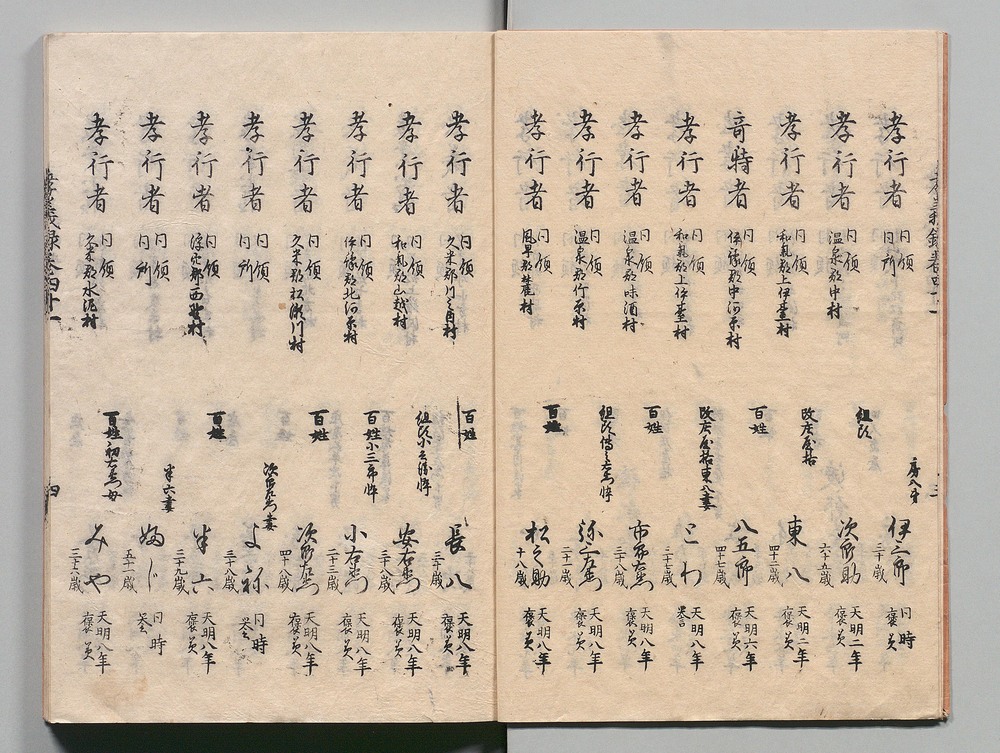 孝行者 同領 同所 房八弟 伊之助 三十歳 同時 褒美
孝行者 同領 温泉郡中村 組頭 次郎助 六十五歳 天明二年 褒美
孝行者 同領 和気郡上伊台村 改庄屋格 東八 四十二歳 天明二年 褒美
奇特者 同領 伊予郡中河原村 百姓 八五郎 四十七歳 天明六年 褒美
孝行者 同領 和気郡上伊台村 改庄屋格東八妻 とわ 三十七歳 天明八年 褒美
孝行者 同領 温泉郡味酒村 百姓 市郎右衛門 三十八歳 天明八年 褒美
孝行者 同領 温泉郡竹原村 組頭 弥右衛門 二十一歳 天明八年 褒美
孝行者 同領 風早郡 村 百姓 松之助 十八歳 天明八年 褒美
三
孝行者 同領 久米郡川之内村 百姓 長八 三十歳 天明八年 褒美
孝行者 同領 和気郡山越村 組頭 倅 安右衛門 三十八歳 天明八年 褒美
孝行者 同領 伊予郡北河原村 百姓小三郎倅 小右衛門 二十三歳 天明八年 褒美
孝行者 同領 久米郡松瀬川村 百姓 次郎右衛門 四十八歳 天明八年 褒美
孝行者 同領 同所 次郎右衛門妻 よね 三十八歳 同時 褒美
孝行者 同領 浮穴郡西 村 百姓 半六 三十九歳 天明八年 褒美
孝行者 同領 同所 半六妻 ふじ 五十一歳 同時 褒美
孝行者 同領 久米郡水泥村 百姓初右衛門母 みや 三十六歳 天明八年 褒美
孝義録巻四十一
四